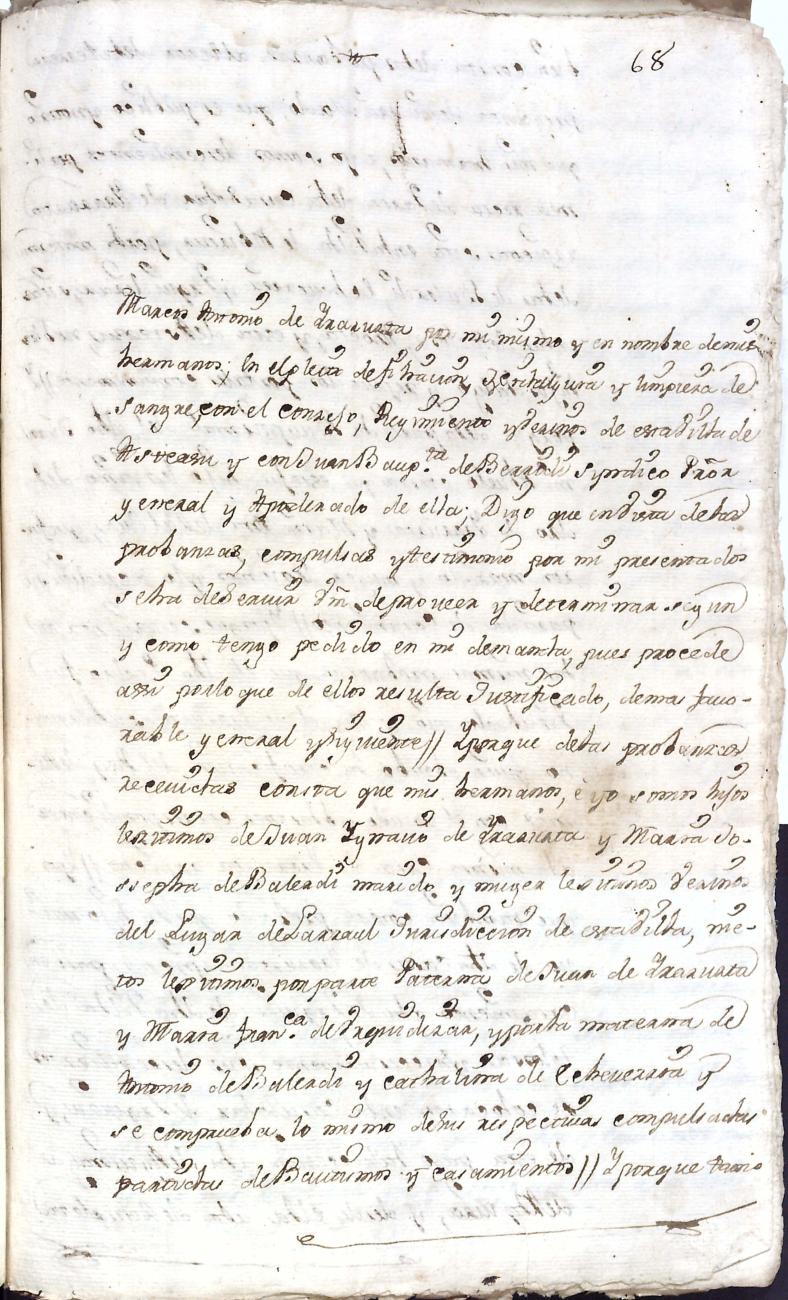 68
Marcos Antonio de Yrazusta por mi mismo y en nombre de mis
hermanos; En el pleito de filiacion, Hidalguia y limpieza de
sangre, con el Concejo, Regimiento y vezinos de esta Villa de
Asteasu y con Juan Baup.ta de Berrodi Syndico Pror
general y Apoderado de ella; Digo que en Vista de las
probanzas, compulsas y testimonio por mi presentados
se ha de servir Vm de proveer y determinar segun
y como tengo pedido en mi demanda, pues procede
assi por lo que de ellos resulta Justificado, demas favo-
rable general y siguiente // Y porque de las probanzas
recevidas consta que mis hermanos, e yo somos hijos
lexitimos de Juan Ygnacio de Yrazusta y Maria Jo-
ssepha de Balerdi marido y muger lexitimos Vezinos
del Lugar de Larraul Jurisdiccion de esta Villa, nie-
tos lexitimos por parte Paterna de Juan de Yrazusta
y Maria Fran.ca de Yrquidizar, y por la materna de
Antonio de Balerdi y Cathalina de Echeverria y
se comprueba lo mismo de sus respectivas compulsadas
partidas de Bautismos y casamientos // Y porque